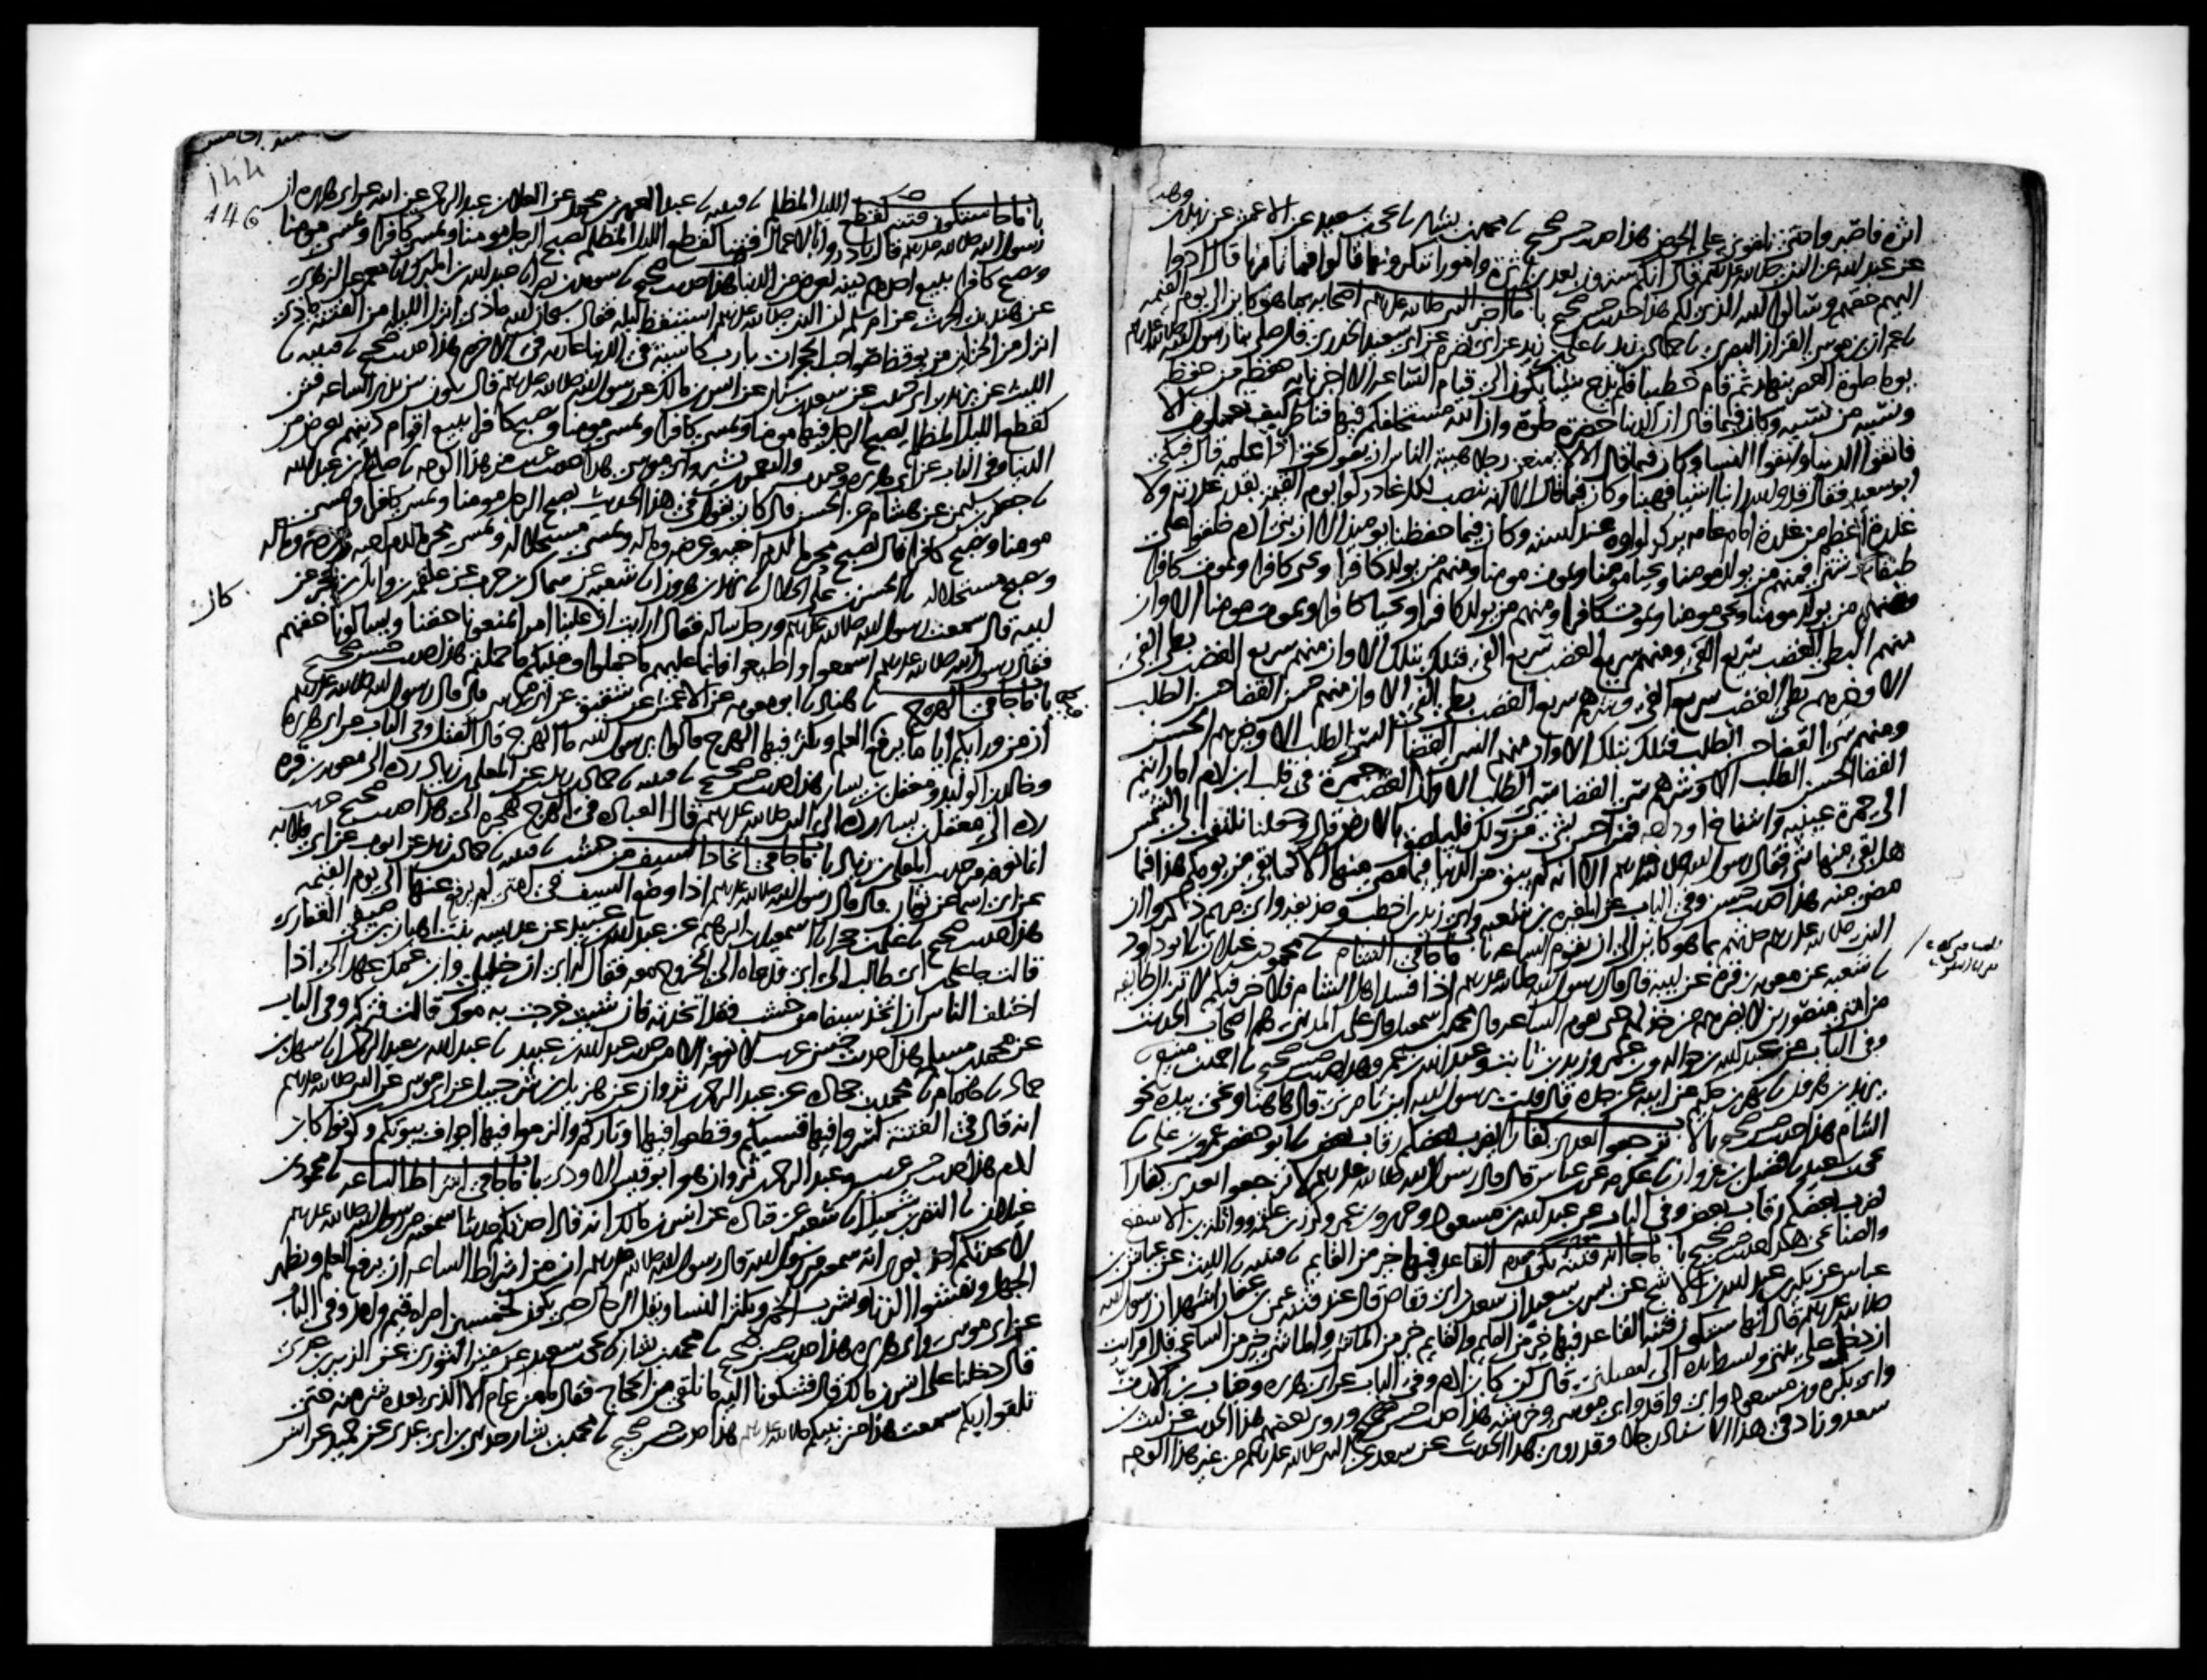 اثرة فاصبروا حتى تلقوني على الحوض هذا حديث حسن صحيح نا محمد بن بشار نا يحيى بن سعيد عن الاعمش عن زيد بن وهب
عن عبد الله عن النبي صلى الله عليه وسلم قال انكم سترون بعدي اثرة وامورا تنكرونها قالوا فما تامرنا قال ادوا
اليهم حقهم وسلوا الله الذي لكم هذا حديث حسن صحيح باب ما اخبر النبي صلى الله عليه وسلم اصحابه بما هو كاين الى يوم القيمة
نا عمران بن موسى القزاز البصري نا حماد بن زيد نا علي بن زيد عن ابي نضرة عن ابي سعيد الخدري قال صلى بنا رسول الله صلى الله عليه وسلم
يوما صلوة العصر بنهار ثم قام خطيبا فلم يدع شيئا يكون الى قيام الساعة الا اخبرنا به حفظه من حفظه
ونسيه من نسيه وكان فيما قال ان الدنيا خضرة حلوة وان الله مستخلفكم فيها فناظر كيف تعملون الا
فاتقوا الدنيا واتقوا النسا وكان فيما قال الا لا يمنعن رجلا هيبة الناس ان يقول بحق اذا علمه قال فبكى
ابو سعيد فقال قد والله راينا اشيا فهبنا وكان فيما قال الا انه ينصب لكل غادر لوا يوم القيمة بقدر غدرته ولا
غدرة اعظم من غدرة امام عامة يركز لواوه عند استه وكان فيما حفظنا يوميذ الا ان بني ادم خلقوا على
طبقات شتى فمنهم من يولد مومنا ويحيا مومنا ويموت مومنا ومنهم من يولد كافرا ويحيى كافرا ويموت كافرا
ومنهم من يولد مومنا ويحيى مومنا ويموت كافرا ومنهم من يولد كافرا ويحيا كافرا ويموت مومنا الا وان
منهم البطي الغضب سريع الفي ومنهم سريع الغضب سريع الفي فتلك بتلك الا وان منهم سريع الغضب بطي الفي
الا وخيرهم بطي الغضب سريع الفي وشرهم سريع الغضب بطي الفي الا وان منهم حسن القضا حسن الطلب
ومنهم سي القضا حسن الطلب فتلك بتلك الا وان منهم السي القضا السي الطلب الا وخيرهم الحسن
القضا الحسن الطلب الا وشرهم سي القضا سي الطلب الا وان الغضب جمرة في قلب ابن ادم اما رايتم
الى حمرة عينيه وانتفاخ اوداجه فمن احس بشي من ذلك فليلصق بالارض قال وجعلنا نلتفت الى الشمس
هل بقي منها شي فقال رسول الله صلى الله عليه وسلم الا انه لم يبق من الدنيا فيما مضى منها الا كما بقي من يومكم هذا فيما
مضى منه هذا حديث حسن وفي الباب عن المغيرة بن شعبة وابي زيد بن اخطب وحذيفة وابي مريم ذكروا ان
النبي صلى الله عليه وسلم حدثهم بما هو كاين الى ان تقوم الساعة باب ما جا في الشام نا محمود بن غيلان نا ابو داود
نا شعبة عن معوية بن قرة عن ابيه قال قال رسول الله صلى الله عليه وسلم اذا فسد اهل الشام فلا خير فيكم لا تزال طايفة
من امتي منصورين لا يضرهم من خذلهم حتى تقوم الساعة قال محمد بن اسمعيل قال علي بن المديني هم اصحاب الحديث
وفي الباب عن عبد الله بن حوالة وبن عمر وزيد بن ثابت وعبد الله بن عمرو وهذا حديث حسن صحيح نا احمد بن منيع
نا يزيد بن هرون نا بهز بن حكيم عن ابيه عن جده قال قلت يرسول الله اين تامرني قال ها هنا ونحى بيده نحو
الشام هذا حديث حسن صحيح باب لا ترجعوا بعدي كفارا يضرب بعضكم رقاب بعض نا ابو حفص عمرو بن علي نا
يحيى بن سعيد نا فضيل بن غزوان نا عكرمة عن بن عباس قال قال رسول الله صلى الله عليه وسلم لا ترجعوا بعدي كفارا
يضرب بعضكم رقاب بعض وفي الباب عن عبد الله بن مسعود وجرير وبن عمر وكرز بن علقمة وواثلة بن الاسقع
والصنابحي هذا حديث حسن صحيح باب ما جا انه تكون فتنة القاعد فيها خير من القايم نا قتيبة نا الليث عن عياش بن
عباس عن بكير بن عبد الله بن الاشج عن بسر بن سعيد ان سعد بن ابي وقاص قال عند فتنة عثمن بن عفان اشهد ان رسول الله
صلى الله عليه وسلم قال انها ستكون فتنة القاعد فيها خير من القايم والقايم خير من الماشي والماشي خير من الساعي قال افرايت
ان دخل علي بيتي وبسط يده الي ليقتلني قال كن كابن ادم وفي الباب عن ابي هريرة وخباب بن الارت
وابي بكرة وبن مسعود وابي واقد وابي موسى وخرشة هذا حديث حسن صحيح وروى بعضهم هذا الحديث عن ليث بن
سعد وزاد في هذا الاسناد رجلا وقد روي هذا الحديث عن سعد عن النبي صلى الله عليه وسلم من غير هذا الوجه
144
146
باب ما جا ستكون فتنة كقطع الليل المظلم نا قتيبة نا عبد العزيز بن محمد عن العلا بن عبد الرحمن عن ابيه عن ابي هريرة ان
رسول الله صلى الله عليه وسلم قال بادروا بالاعمال فتنا كقطع الليل المظلم يصبح الرجل مومنا ويمسي كافرا ويمسي مومنا
ويصبح كافرا يبيع احدهم دينه بعرض من الدنيا هذا حديث صحيح نا سويد بن نصر نا عبد الله بن المبارك نا معمر عن الزهري
عن هند بنت الحرث عن ام سلمة ان النبي صلى الله عليه وسلم استيقظ ليلة فقال سبحان الله ماذا انزل الليلة من الفتنة ماذا
انزل من الخزاين من يوقظ صواحب الحجرات يا رب كاسية في الدنيا عارية في الاخرة هذا حديث صحيح نا قتيبة نا
الليث عن يزيد بن ابي حبيب عن سعد بن سنان عن انس بن مالك عن رسول الله صلى الله عليه وسلم قال تكون بين يدي الساعة فتن
كقطع الليل المظلم يصبح الرجل فيها مومنا ويمسي كافرا ويمسي مومنا ويصبح كافرا يبيع اقوام دينهم بعرض من
الدنيا وفي الباب عن ابي هريرة وجندب والنعمن بن بشير وابي موسى هذا حديث غريب من هذا الوجه نا صالح بن عبد الله
نا جعفر بن سليمن عن هشام عن الحسن قال كان يقول في هذا الحديث يصبح الرجل مومنا ويمسي كافرا ويمسي
مومنا ويصبح كافرا قال يصبح محرما لدم اخيه وعرضه وماله ويمسي مستحلا له ويمسي محرما لدم اخيه وعرضه وماله
ويصبح مستحلا له نا الحسن بن علي الخلال نا يزيد بن هرون نا شعبة عن سماك بن حرب عن علقمة بن وايل بن حجر عن
ابيه قال سمعت رسول الله صلى الله عليه وسلم ورجل ساله فقال ارايت ان كان علينا امرا يمنعونا حقنا ويسالونا حقهم
فقال رسول الله صلى الله عليه وسلم اسمعوا واطيعوا فانما عليهم ما حملوا وعليكم ما حملتم هذا حديث حسن صحيح
باب ما جا في الهرج نا هناد نا ابو معوية عن الاعمش عن شقيق عن ابي موسى قال قال رسول الله صلى الله عليه وسلم
ان من ورايكم اياما يرفع العلم ويكثر فيها الهرج قالوا يرسول الله ما الهرج قال القتل وفي الباب عن ابي هريرة
وخالد بن الوليد ومعقل بن يسار هذا حديث صحيح نا قتيبة نا حماد بن زيد عن المعلى بن زياد رده الى معوية بن قرة
رده الى معقل بن يسار رده الى النبي صلى الله عليه وسلم قال العبادة في الهرج كهجرة الي هذا حديث صحيح غريب
انما نعرفه من حديث المعلى بن زياد باب ما جا في اتخاذ السيف من خشب نا قتيبة نا حماد بن زيد عن ايوب عن ابي قلابة
عن ابي اسما عن ثوبان قال قال رسول الله صلى الله عليه وسلم اذا وضع السيف في امتي لم يرفع عنها الى يوم القيمة
هذا حديث صحيح نا علي بن حجر نا اسمعيل بن ابرهيم عن عبد الله بن عبيد عن عديسة بنت اهبان بن صيفي الغفاري
قالت جا علي بن ابي طالب الى ابي فدعاه الى الخروج معه فقال له ابي ان خليلي وابن عمك عهد الي اذا
اختلف الناس ان اتخذ سيفا من خشب فقد اتخذته فان شيت خرجت به معك قالت فتركه وفي الباب
عن محمد بن مسلمة هذا حديث حسن غريب لا نعرفه الا من حديث عبد الله بن عبيد نا عبد الله بن عبد الرحمن نا سهل بن
حماد نا همام نا محمد بن جحادة عن عبد الرحمن بن ثروان عن هزيل بن شرحبيل عن ابي موسى عن النبي صلى الله عليه وسلم
انه قال في الفتنة كسروا فيها قسيكم وقطعوا فيها اوتاركم والزموا فيها اجواف بيوتكم وكونوا كابن
ادم هذا حديث حسن غريب وعبد الرحمن بن ثروان هو ابو قيس الاودي باب ما جا في اشراط الساعة نا محمود بن
غيلان نا النضر بن شميل نا شعبة عن قتادة عن انس بن مالك انه قال احدثكم حديثا سمعته من رسول الله صلى الله عليه وسلم
لا يحدثكم احد بعدي انه سمعه من رسول الله قال رسول الله صلى الله عليه وسلم ان من اشراط الساعة ان يرفع العلم ويظهر
الجهل ويفشوا الزنا ويشرب الخمر ويكثر النسا ويقل الرجال حتى يكون لخمسين امراة قيم واحد وفي الباب
عن ابي موسى وابي هريرة هذا حديث حسن صحيح نا محمد بن بشار نا يحيى بن سعيد عن سفين الثوري عن الزبير بن عدي
قال دخلنا على انس بن مالك قال فشكونا اليه ما نلقى من الحجاج فقال ما من عام الا الذي بعده شر منه حتى
تلقوا ربكم سمعت هذا من نبيكم صلى الله عليه وسلم هذا حديث حسن صحيح نا محمد بن بشار نا بن ابي عدي عن حميد عن انس